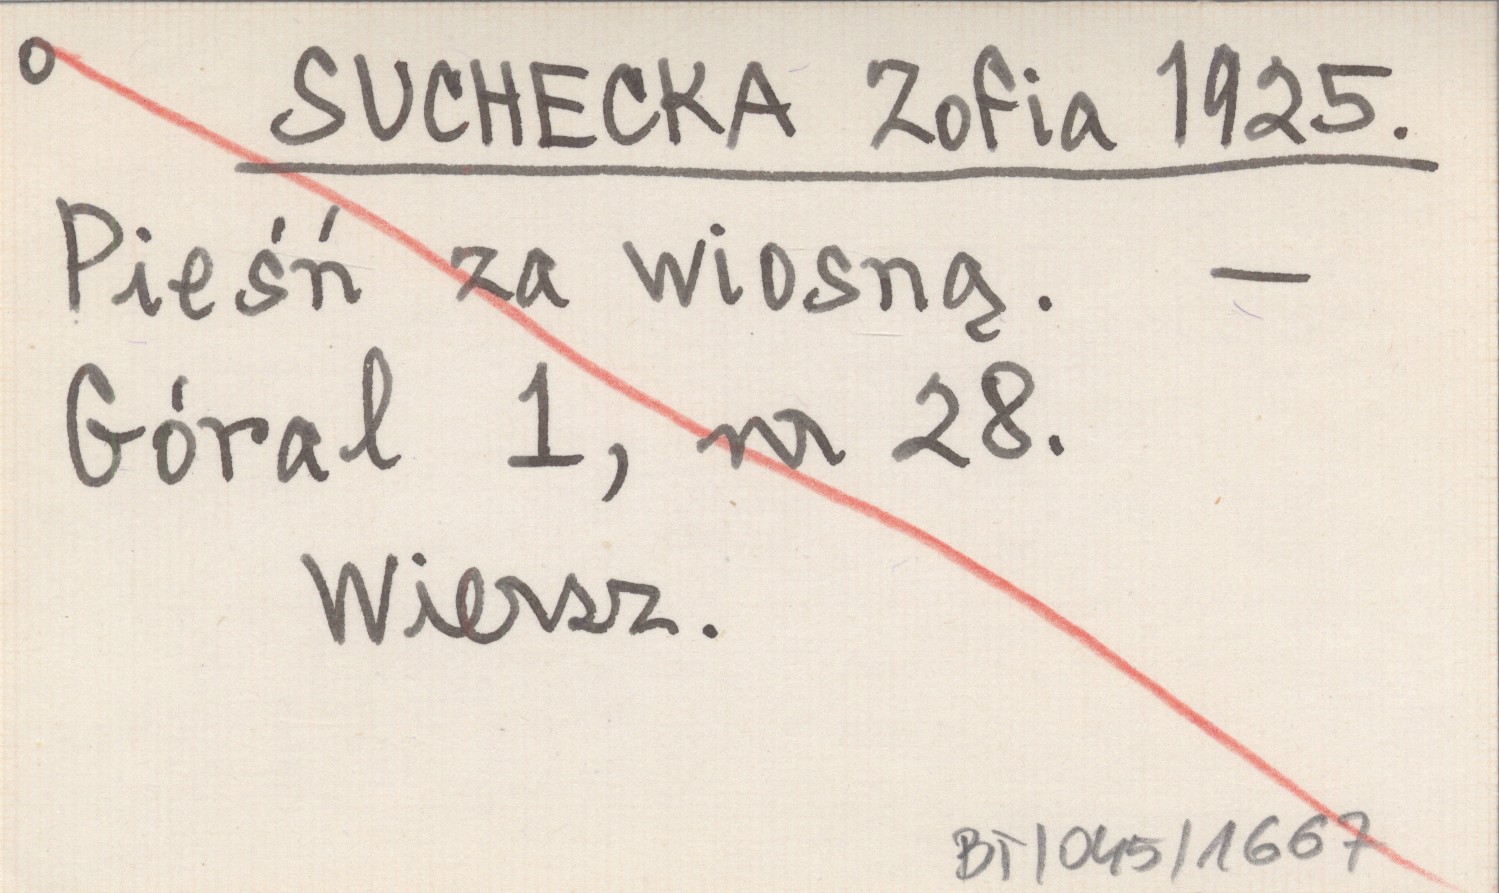 o SUCHECKA Zofia 1925.
Pieśń za wiosną. —
Góral 1, nr 28.
Wiersz.
BT/045/1667